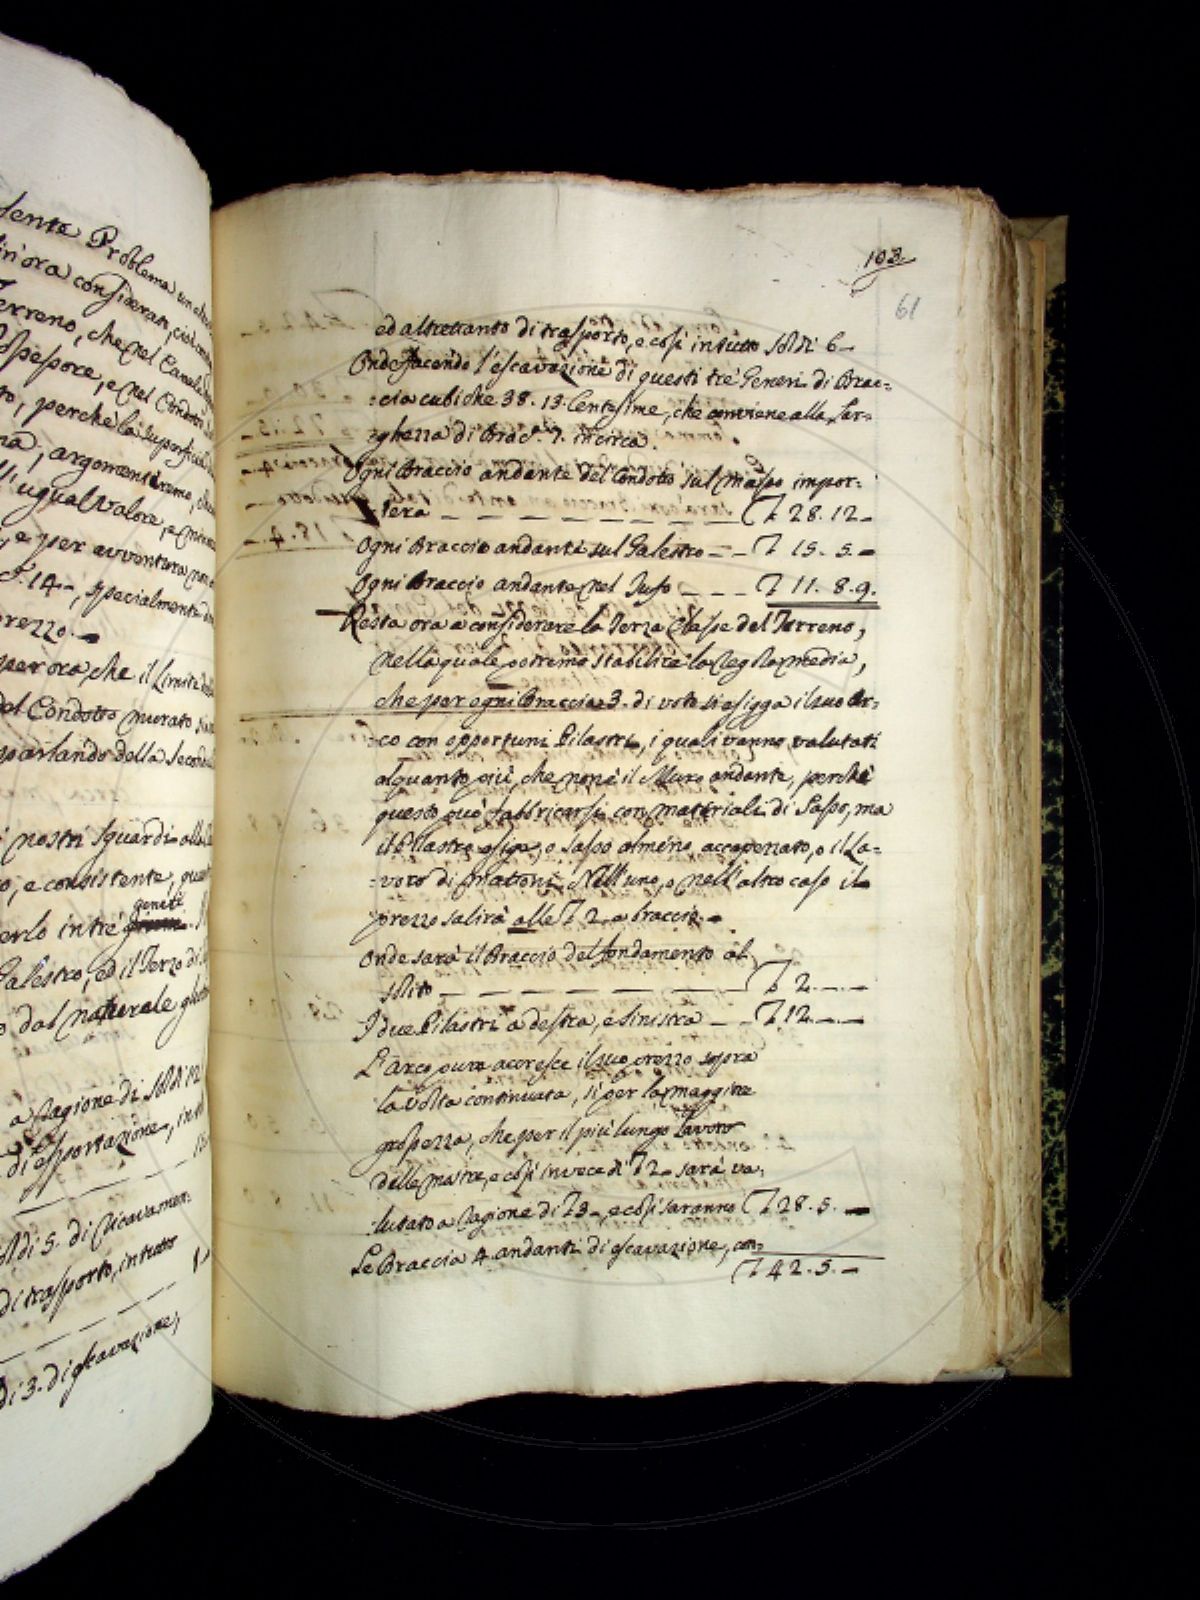 sente Problema un altro
in'ora considerati, cioè
Terreno, che nel Canale
nel Condotto
to, perchè la superficie
na, argomentiremo, che
d'ugual valore, e
e per avventura non
14 -, specialmente
prezzo.
per ora, che il Limite
del Condotto murato
parlando della Seconda
i nostri sguardi alla
o, e consistente,
geniti
erlo in tre
Galestro, ed il Terzo di
dal naturale
a ragione di soldi 12
di esportazione, in
soldi 5. di ricavamen:
di trasporto, in tutto
di 3. di escavazione,
103
61
ed altrettanto di trasporto, e così in tutto soldi 6 -
Onde facendo l'escavazione di questi trè Generi di Brac:
:cia cubiche 38. 13. Centesime, che conviene alla Lar:
:ghezza di Brac. 7. incirca.
Ogni Braccio andante del Condotto sul Masso impor:
:terà _ _ _ _ _ _ _ _ _ £ 28. 12 -
Ogni Braccio andante sul Galestro _ _ £ 15. 5. -
Ogni Braccio andante nel Tufo _ _ _ £ 11. 8. 9.
Resta ora a considerare la Terza Classe del Terreno,
nella quale potremo stabilire la regola media,
che per ogni Braccia 3. di voto si esigga il suo Ar:
:co con opportuni Pilastri, i quali vanno valutati
alquanto più, che non è il Muro andante, perchè
questo può fabbricarsi con materiali di Sasso, ma
il Pilastro esige, o sasso almeno accapezzato, o il La:
:voro di mattoni. Nell'uno, o nell'altro caso il
prezzo salirà alle £ 2 - a braccio. -
Onde sarà il Braccio del fondamento al
solito _ _ _ _ _ _ _ _ £ 2. _ . _
I due Pilastri a destra, e sinistra _ _ £ 12. _ . _
L'arco pure accresce il suo prezzo sopra
la volta continuata, sì per la maggiore
grossezza, che per il più lungo Lavoro
delle mastre, e così in vece di £ 2 - sarà va:
:lutato a ragione di £ 3 -, e così saranno £ 28. 5. -
Le Braccia 4 andanti di escavazione, con:
£ 42. 5. -